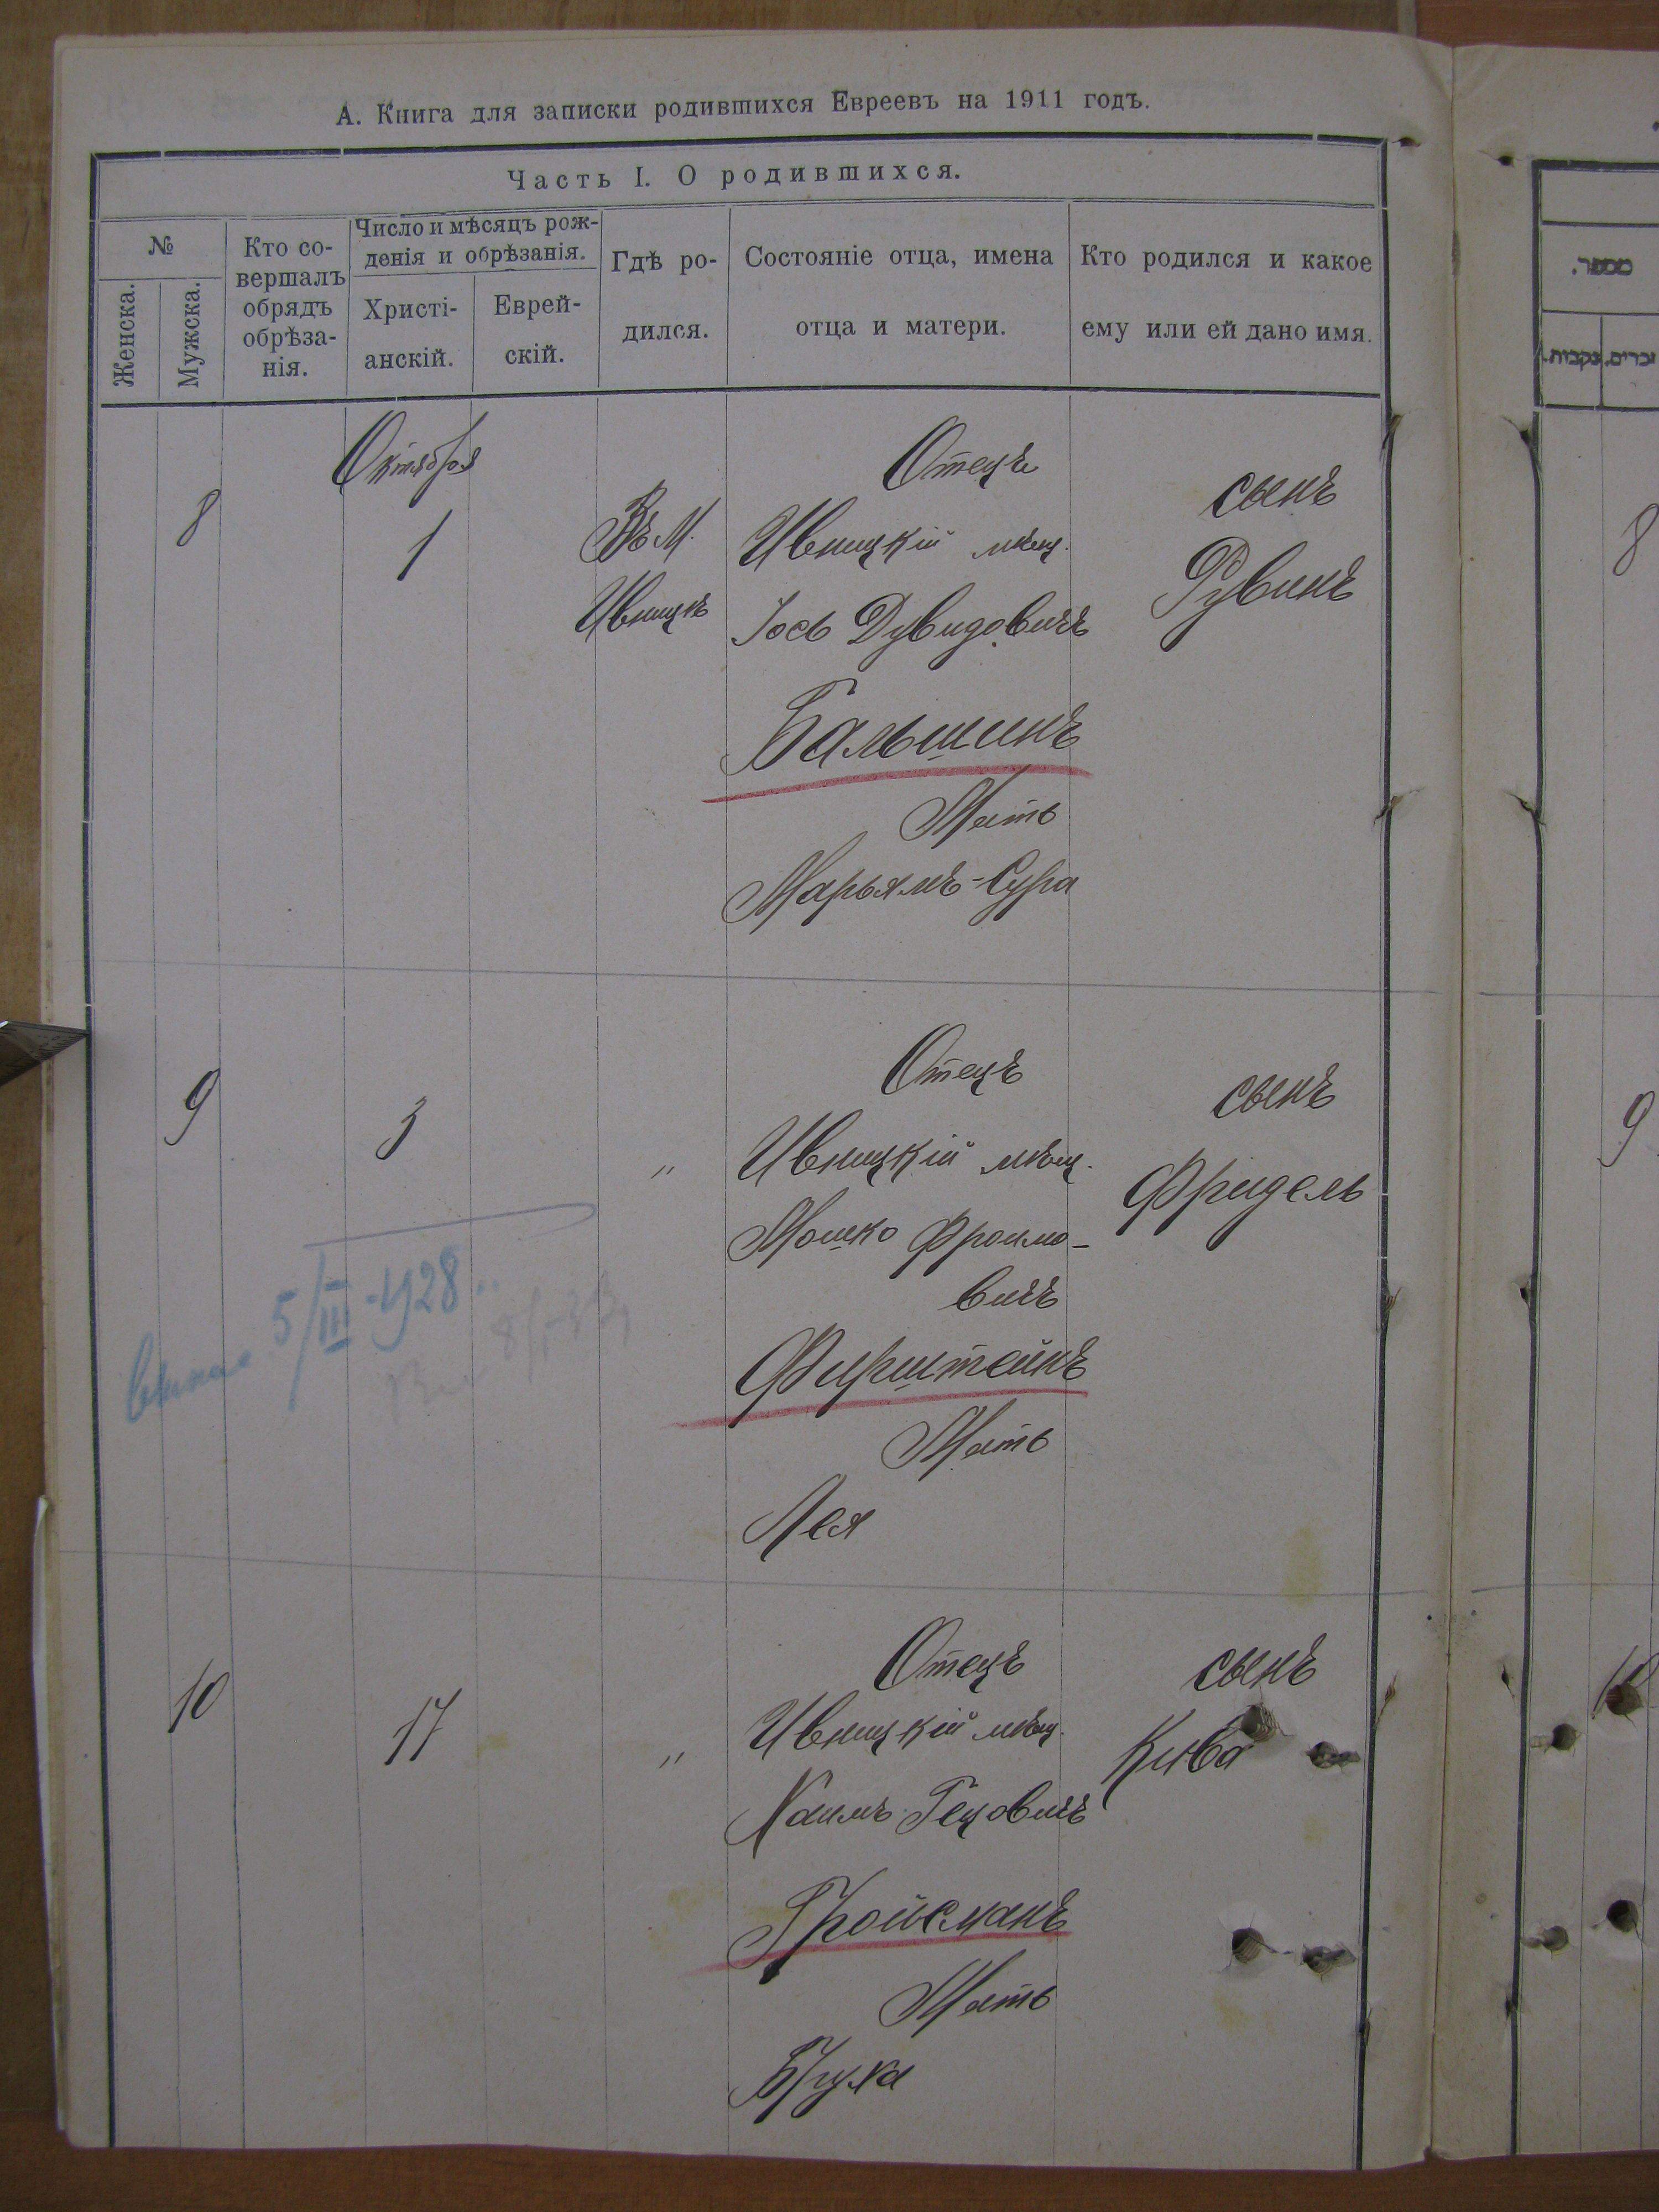 А. Книга для записки родившихся Евреевъ на 1911 годъ.
Часть I. О родившихся.
№
Женска.
Мужска.
Кто со-
вершалъ
обрядъ
обрѣза-
нія.
Число и мѣсяцъ рож-
денія и обрѣзанія.
Христі-
анскій.
Еврей-
скій.
Гдѣ ро-
дился.
Состояніе отца, имена
отца и матери.
Кто родился и какое
ему или ей дано имя.
מספר.
זכרים.
נקבות.
Октября
8
1
Въ М.
Ивницкѣ
Отецъ
Ивницкій мѣщ.
Іось Дувидовичъ
Бальшинъ
Мать
Марьямъ-Сура
сынъ
Рувинъ
8
9
3
"
Отецъ
Ивницкій мѣщ.
Мошко Фроимо-
вичъ
Фирштейнъ
Мать
Лея
сынъ
Фридель
9
5/III-1928
10
17
"
Отецъ
Ивницкій мѣщ.
Хаимъ Гецовичъ
Гройсманъ
Мать
Бруха
сынъ
Кива
10